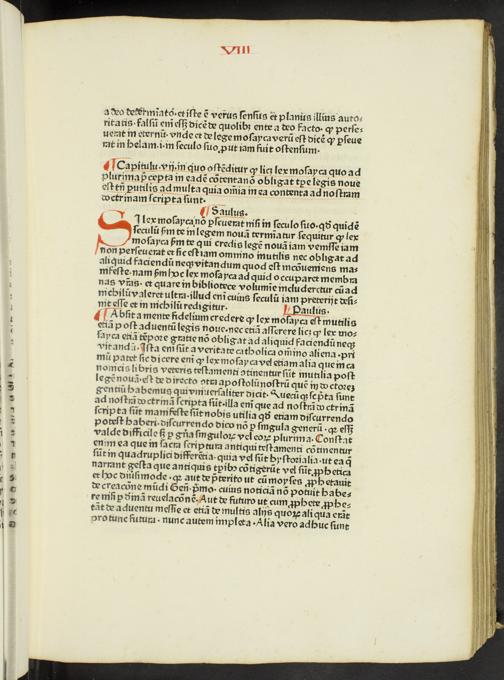 VIII
a deo determiatō. et iste ē verus sensus et planus illius auto-
ritatis. falsū em̄ eēt dicē de quolibꝫ ente a deo facto. ꝙ perse-
uerat in eternū. vnde et de lege mosayca verū est dicē ꝙ pseue
rat in helam. i. in seculo suo, put iam fuit ostensum.
Capitulū. vij. in quo ostēditur ꝙ licꝫ lex mosayca quo ad
plurima pcepta in ea dē cōtenta nō obligat tpe legis noue
est tn̄ putilis ad multa quia om̄ia in ea contenta ad nostram
doctrinam scripta sunt.
Saulus.
SI lex mosayca nō pseuerat nisi in seculo suo. qd̄ quidē
seculū fm te in legem nouam termiatur sequitur ꝙ lex
mosayca fm te qui credis legē nouā iam venisse iam
non perseuerat et sic est iam omnino inutilis nec obligat ad
aliquid faciendū neqꝫ vitandum quod est incōueniens ma-
nifeste. nam fm hoc lex mosayca ad quid occuparet membra
nas vr̄as. et quare in bibliotece volumie includertur cū ad
nichilū valeret vltra. illud em̄ cuius seculū iam preterijt desi-
nit esse et in nichilū redigitur.
Paulus.
Absit a mente fidelium credere ꝙ lex mosayca est inutilis
etiā post aduentū legis noue. nec etiā asserere licꝫ ꝙ lex mo-
sayca etiā tēpore gratie nō obligat ad aliquid faciendū neqꝫ
vitandū. Ista em̄ sūt a veritate catholica om̄ino aliena. pri
mū patet sic dicere em̄ ꝙ lex mosayca vel etiam alia que in ca
nonicis libris veteris testamenti ɔtinentur sūt inutilia post
legē nouā. est de directo ɔtra apostolū nostrū quē in doctorē
gentiū habemus qui vniuersaliter dicit. Quecūqꝫ scpta sunt
ad nostrā doctrinā scripta sūt. illa em̄ que ad nostrā doctrinā
scripta sūt manifeste sūt nobis utilia qd̄ etiam discurrendo
potest haberi. discurrendo dico nō p singula generū. qꝫ eēt
valde difficile sꝫ p gn̄a singuloꝝ vel eoꝝ plurima. Constat
enim ea que in sacra scriptura antiqui testamenti cōtinentur
sūt in quadruplici differētia. quia vel sūt hystorialia. ut ea ꝙ
narrant gesta que antiquis tpibꝫ cōtigerūt vel sūt, pphetica
et hoc diuersimode. qꝫ aut de pterito ut cū moyses, pphetauit
de creacōne mūdi Gen̄. pmo. cuius noticiā nō potuit habe-
re nisi p diuinā reuelacōnē. Aut de futuro ut cum, pphete, pphe-
tāt de aduentu messie et etiā de multis alijs quoꝝ aliqua erāt
pro tunc futura. nunc autem impleta. Alia vero adhuc sunt